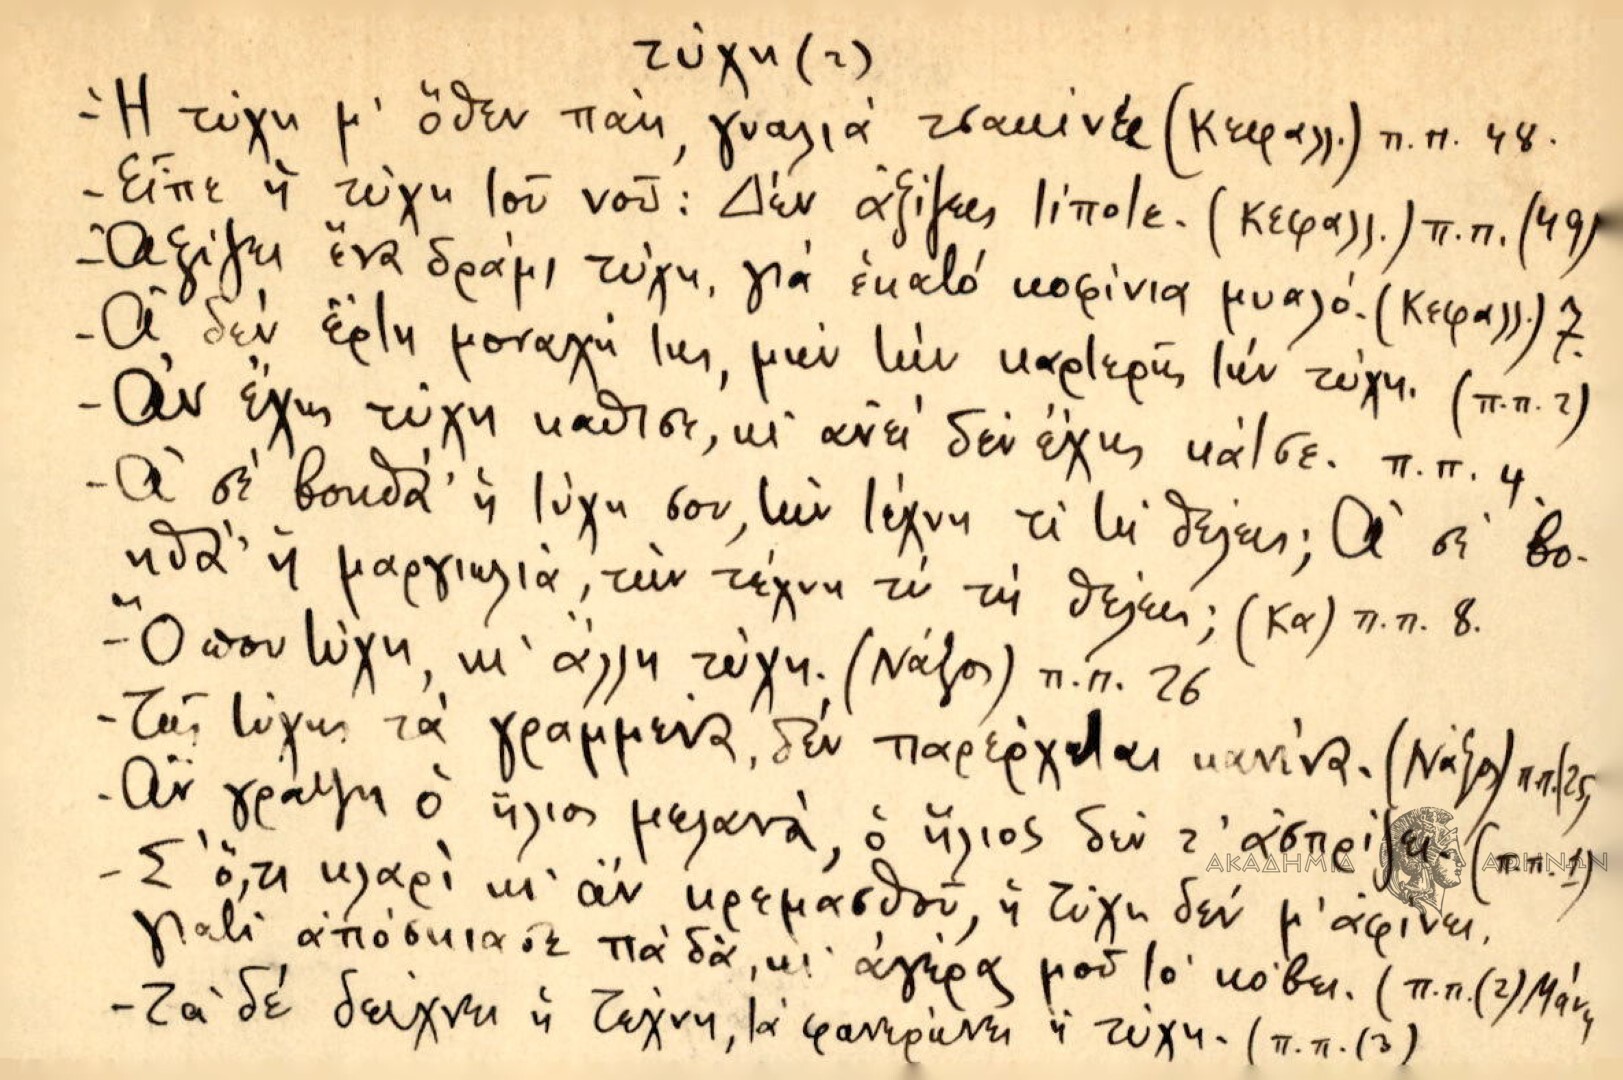 τύχη (2)
- Ἡ τύχη μ' ὅθεν πάη, γυαλιά τσακίνει (Κεφαλλ.) π.π. 48.
- Εἶπε ἡ τύχη τοῦ νοῦ: Δέν ἀξίζεις τίποτε. (Κεφαλλ.) π.π. (49)
- Ἀξίζει ἕνα δράμι τύχη, γιά ἑκατό κοφίνια μυαλό. (Κεφαλλ.) 7.
- Ἄ δέν ἔρτη μοναχή της, μήν τήν καρτερῆς τήν τύχη. (π.π. 2)
- Ἄν ἔχης τύχη κάθισε, κι' ἄνεί δέν ἔχης κάτσε. π.π. 4.
- Ἄ σέ βοηθά' ἡ τύχη σου, τήν τέχνη τί τή θέλεις; Ἄ σέ βο-
ηθά' ἡ μαργιολιά, τήν τέχνη τί τή θέλεις; (Κα) π.π. 8.
- Ὅπου τύχη, κι' ἄλλη τύχη. (Νάξος) π.π. 26
- Τῆς τύχης τά γραμμένα, δέν παρέρχεται κανένα. (Νάξος) π.π. (25)
- Ἄν γράψη ὁ ἥλιος μελανά, ὁ ἥλιος δέν τ' ἀσπρίζει. (π.π. 1)
- Σ' ὅ,τι κλαρί κι' ἄν κρεμασθοῦ, ἡ τύχη δέν μ' ἀφίνει,
γιατί ἀπόσκιασε πά δά, κι' ἀγέρας μοῦ τό κόβει. (π.π. (2) Μάνη
- Τά δέ δείχνει ἡ τέχνη, τά φανερώνει ἡ τύχη. (π.π. (3)
ΑΚΑΔΗΜΙΑ ΑΘΗΝΩΝ